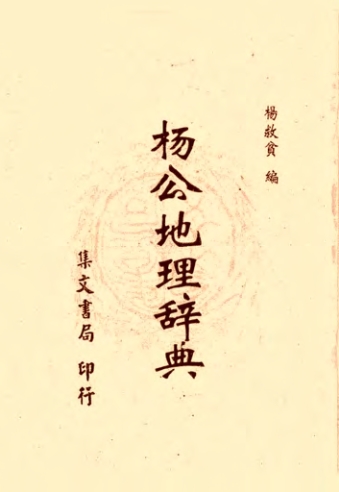 楊救貧 編
杨公地理辞典
集文書局 印行